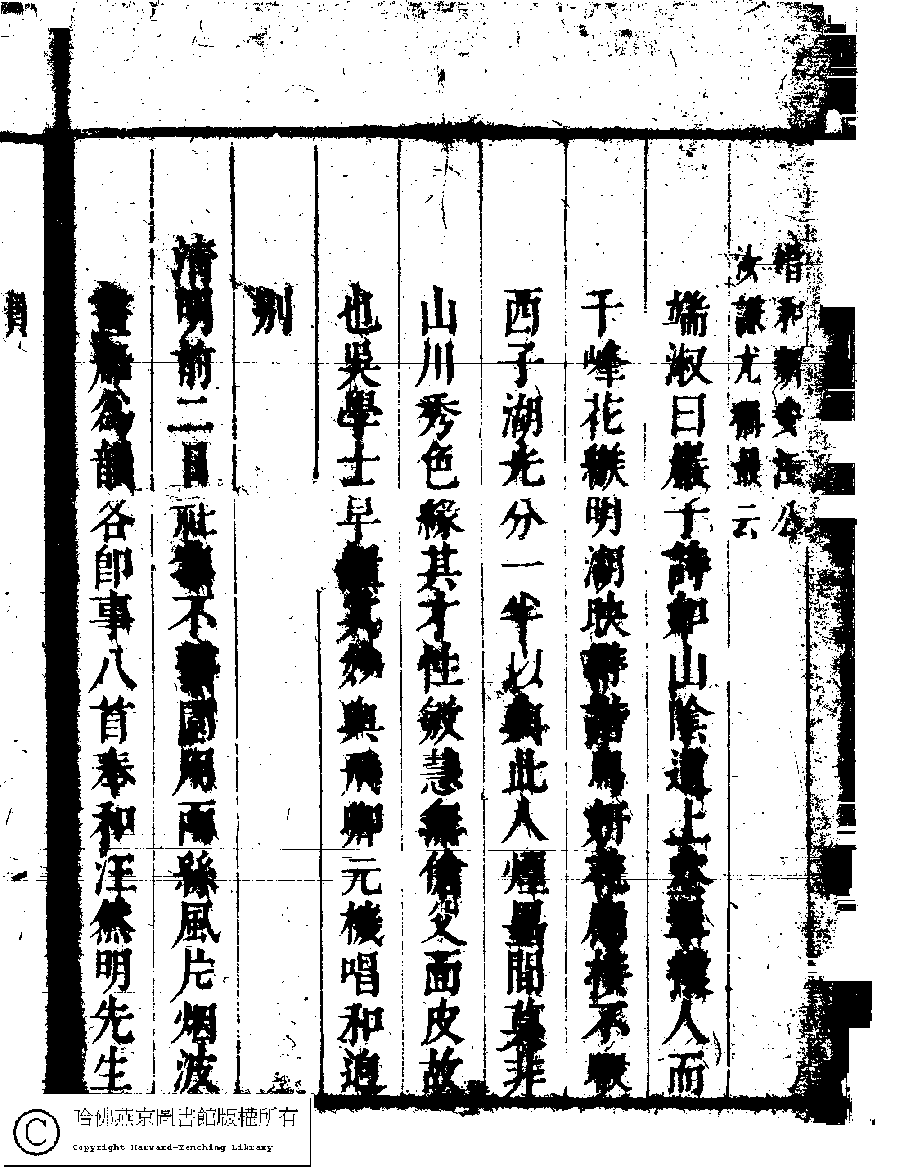 惜和新安汪公
汝謙尤稱最云
端淑曰巖子詩如山陰道上人而
千峰花樹明湖映不暇
西子湖光分一半以與此人煙墨間莫非
山川秀色緣其才性敏慧無傖父面皮故
也吳學士早妙與飛卿元機唱和迫
別
清明前二日社集不園用雨絲風片烟波
畫船為韻各即事八首奉和汪然明先生
哈佛燕京圖書館版權所有
Copyright Harvard-Yenching Library